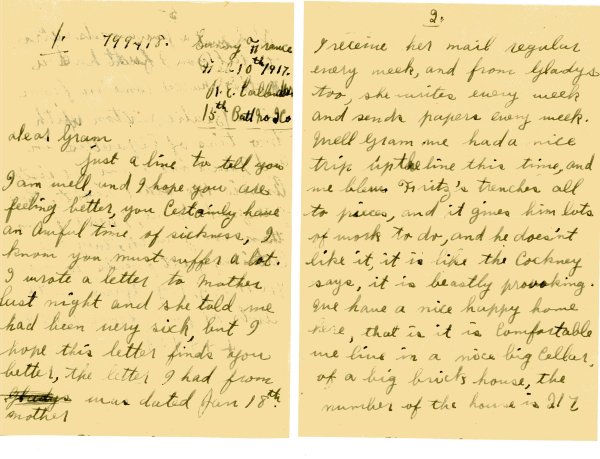 1. 799418. Sunny France
10th 1917.
15th Batt No 3 Co
Dear Gram
Just a line to tell you
I am well, and I hope you are
feeling better, you Certainly have
an awful time of sickness, I
know you must suffer a lot.
I wrote a letter to Mother
last night and she told me
had been very sick, but I
hope this letter finds you
better, the letter I had from
Gladys was dated Jan 18th.
mother
2.
I receive her mail regular
every week, and from Gladys
too, she writes every week
and sends papers every week.
Well Gram we had a nice
trip up the line this time, and
we blew Fritz's trenches all
to pieces, and it gives him lots
of work to do, and he doesn't
like it, it is like the Cockney
says, it is beastly provoking.
We have a nice happy home
here, that is it is Comfortable
we live in a nice big Cellar,
of a big brick house, the
number of the house is 217